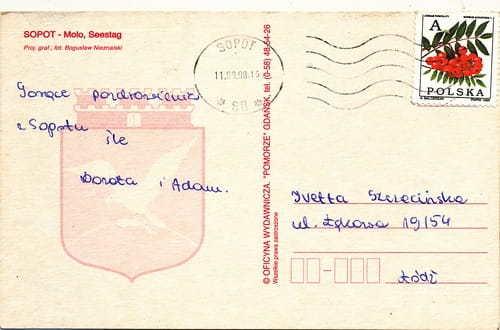 SOPOT - Molo, Seestag
Proj. graf., fot. Bogusław Nieznalski
SOPOT
11.09.98.15
* SB *
A
POLSKA
Gorące pozdrowienia
z Sopotu śle
Dorota i Adam.
© OFICYNA WYDAWNICZA "POMORZE" GDAŃSK, tel. (0-58) 48-54-26
Wszelkie prawa zastrzeżone
Ivetta Szczecińska
ul. Łąkowa 19/54
Łódź